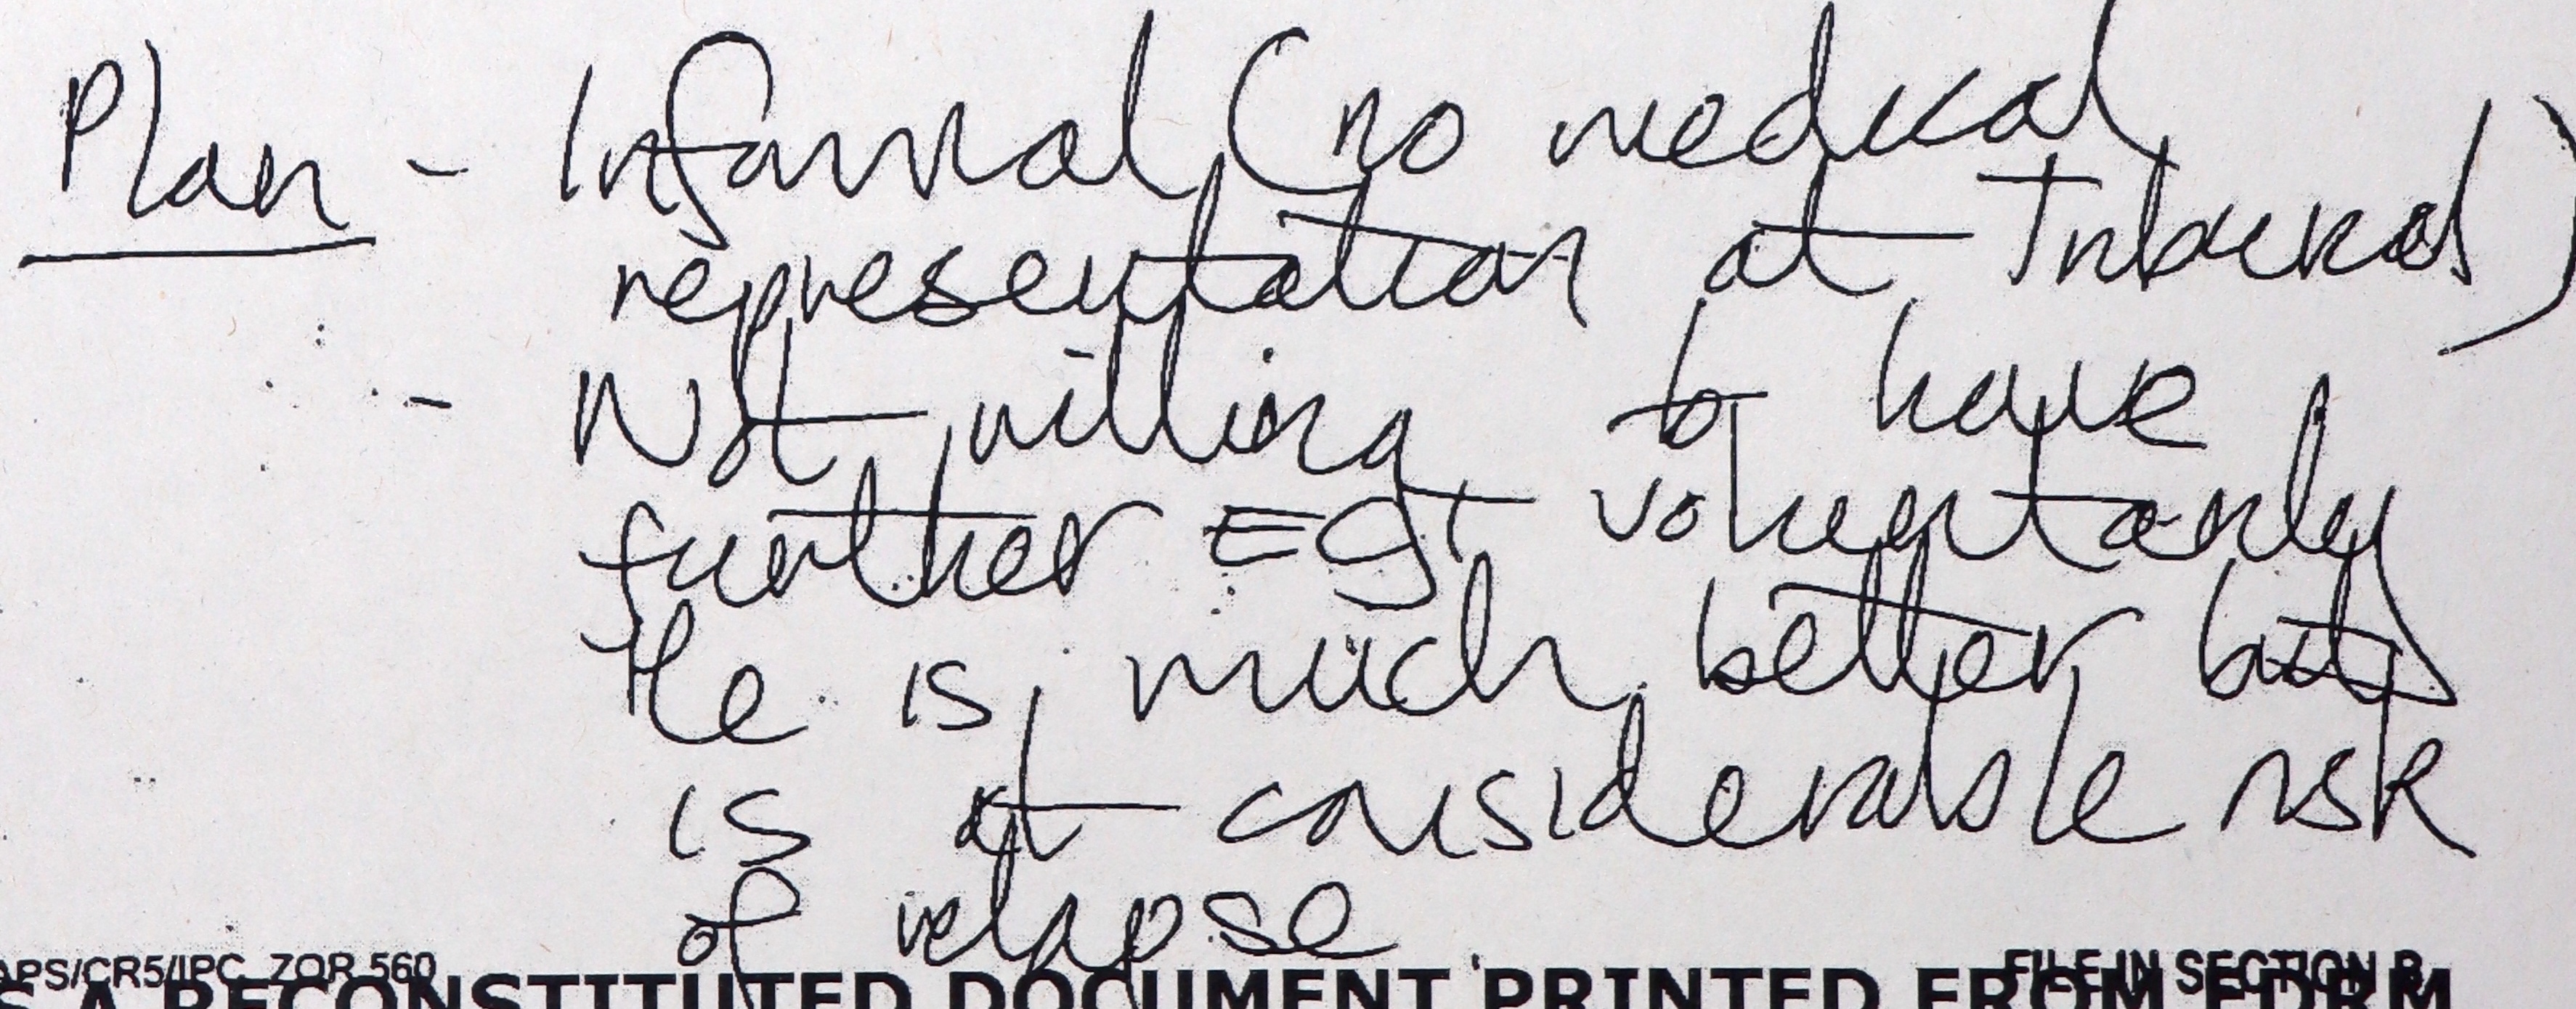 Plan - Informal (no medical
representation at Tribunal)
- Not willing to have
further ECT voluntarily
He is much better but
is at considerable risk
of relapse.
APS/CR5/IPC ZOR 560 FILE IN SECTION B
S A RECONSTITUTED DOCUMENT PRINTED FROM FORM